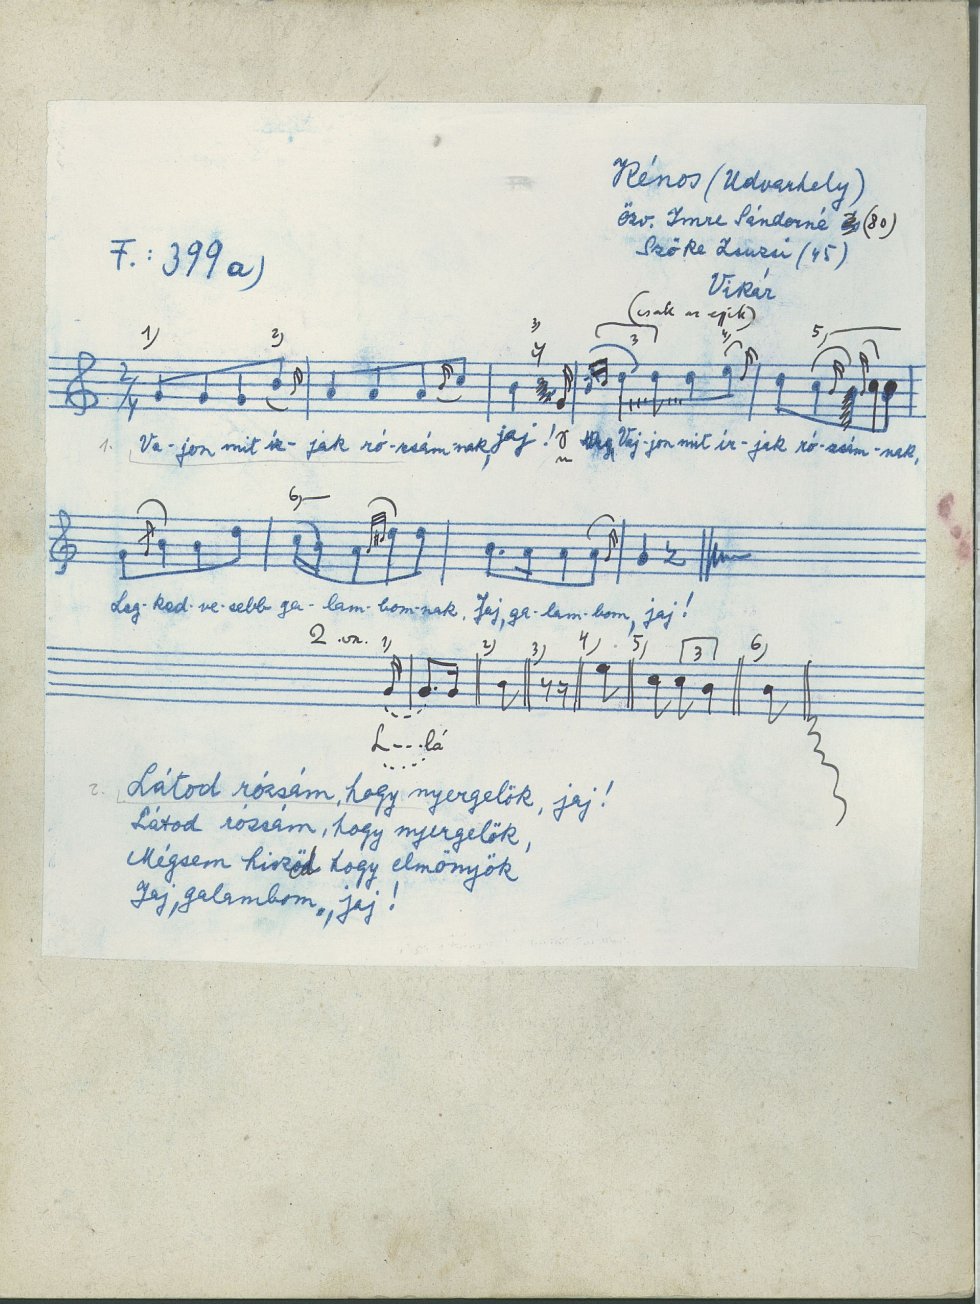 Kénos (Udvarhely)
özv. Imre Sándorné (80)
Szőke Zsuzsi (45)
Vikár
F.: 399 a)
(csak az egyik)
1) 2) 3) 3 4) 5)
2/4
1. Va-jon mit ír-ják ró-zsám-nak, jaj! Vaj-jon mit ír-ják ró-zsám-nak,
6)
Leg-ked-ve-sebb ga-lam-bom-nak. Jaj, ga-lam-bom, jaj!
2. vsz. 1) 2) 3) 4) 5) 3 6)
L---lá
2. Látod rózsám, hogy nyergelök, jaj!
Látod rózsám, hogy nyergelök,
Mégsem hiszöd hogy elmönyök
Jaj, galambom, jaj!